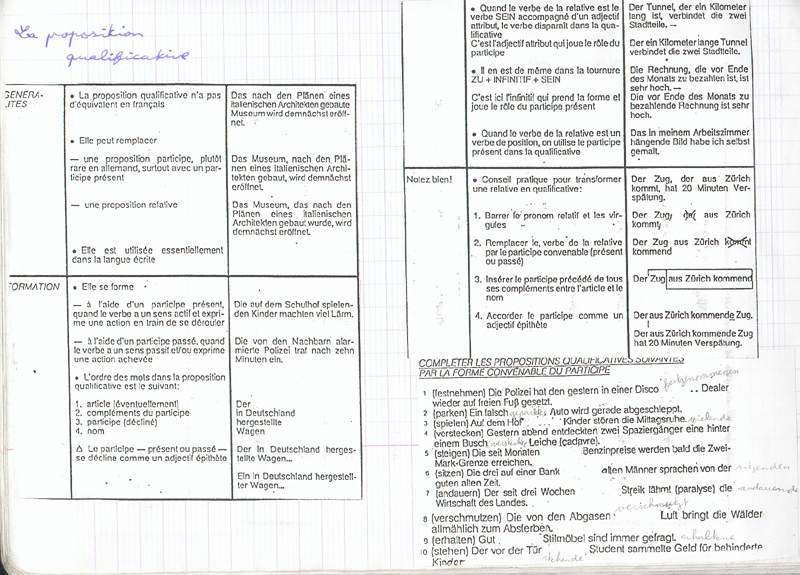 La proposition
qualificative
GENERA-
LITES
• La proposition qualificative n'a pas
d'équivalent en français
Das nach den Plänen eines
italienischen Architekten gebaute
Museum wird demnächst eröff-
net.
• Elle peut remplacer
— une proposition participe, plutôt
rare en allemand, surtout avec un par-
ticipe présent
Das Museum, nach den Plä-
nen eines italienischen Archi-
tekten gebaut, wird demnächst
eröffnet.
— une proposition relative
Das Museum, das nach den
Plänen eines italienischen
Architekten gebaut wurde, wird
demnächst eröffnet.
• Elle est utilisée essentiellement
dans la langue écrite
FORMATION
• Elle se forme
— à l'aide d'un participe présent,
quand le verbe a un sens actif et expri-
me une action en train de se dérouler
Die auf dem Schulhof spielen-
den Kinder machten viel Lärm.
— à l'aide d'un participe passé, quand
le verbe a un sens passif et/ou exprime
une action achevée
Die von den Nachbarn alar-
mierte Polizei traf nach zehn
Minuten ein.
• L'ordre des mots dans la proposition
qualificative est le suivant:
1. article (éventuellement)
2. compléments du participe
3. participe (décliné)
4. nom
Der
in Deutschland
hergestellte
Wagen
⚠ Le participe — présent ou passé —
se décline comme un adjectif épithète
Der in Deutschland herges-
tellte Wagen...
Ein in Deutschland hergestell-
ter Wagen...
• Quand le verbe de la relative est le
verbe SEIN accompagné d'un adjectif
attribut, le verbe disparaît dans la qua-
lificative
C'est l'adjectif attribut qui joue le rôle du
participe
Der Tunnel, der ein Kilometer
lang ist, verbindet die zwei
Stadtteile. —
Der ein Kilometer lange Tunnel
verbindet die zwei Stadtteile.
• Il en est de même dans la tournure
ZU + INFINITIF + SEIN
C'est ici l'infinitif qui prend la forme et
joue le rôle du participe présent
Die Rechnung, die vor Ende
des Monats zu bezahlen ist, ist
sehr hoch. —
Die vor Ende des Monats zu
bezahlende Rechnung ist sehr
hoch.
• Quand le verbe de la relative est un
verbe de position, on utilise le participe
présent dans la qualificative
Das in meinem Arbeitszimmer
hängende Bild habe ich selbst
gemalt.
Notez bien!
• Conseil pratique pour transformer
une relative en qualificative:
Der Zug, der aus Zürich
kommt, hat 20 Minuten Ver-
spätung.
1. Barrer le pronom relatif et les vir-
gules
Der Zug, der aus Zürich
kommt,
2. Remplacer le verbe de la relative
par le participe convenable (présent
ou passé)
Der Zug aus Zürich kommt
kommend
3. Insérer le participe précédé de tous
ses compléments entre l'article et le
nom
Der Zug aus Zürich kommend
4. Accorder le participe comme un
adjectif épithète
Der aus Zürich kommende Zug.
Der aus Zürich kommende Zug
hat 20 Minuten Verspätung.
COMPLETER LES PROPOSITIONS QUALIFICATIVES SUIVANTES
PAR LA FORME CONVENABLE DU PARTICIPE
1 (festnehmen) Die Polizei hat den gestern in einer Disco festgenommenen .. Dealer
wieder auf freien Fuß gesetzt.
2 (parken) Ein falsch geparktes Auto wird gerade abgeschleppt.
3 (spielen) Auf dem Hof ... Kinder stören die Mittagsruhe. spielende
4 (verstecken) Gestern abend entdeckten zwei Spaziergänger eine hinter
einem Busch versteckte Leiche (cadavre).
5 (steigen) Die seit Monaten Benzinpreise werden bald die Zwei-
Mark-Grenze erreichen.
6 (sitzen) Die drei auf einer Bank alten Männer sprachen von der sitzenden
guten alten Zeit.
7 (andauern) Der seit drei Wochen Streik lähmt (paralyse) die andauernde
Wirtschaft des Landes.
verschmutzt
8 (verschmutzen) Die von den Abgasen Luft bringt die Wälder
allmählich zum Absterben.
9 (erhalten) Gut Stilmöbel sind immer gefragt. erhaltene
10 (stehen) Der vor der Tür stehende Student sammelte Geld für behinderte
Kinder